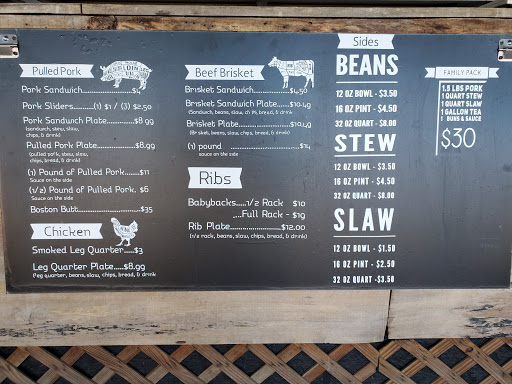 Pulled Pork
Pork Sandwich.......$4
Pork Sliders.......(1) $1 / (3) $2.50
Pork Sandwich Plate.......$8.99
(sandwich, stew, slaw,
chips, & drink)
Pulled Pork Plate.......$8.99
(pulled pork, stew, slaw,
chips, bread, & drink)
(1) Pound of Pulled Pork......$11
Sauce on the side
(1/2) Pound of Pulled Pork. $6
Sauce on the side
Boston Butt.......$35
Chicken
Smoked Leg Quarter.....$3
Leg Quarter Plate.....$8.99
(leg quarter, beans, slaw, chips, bread, & drink
Beef Brisket
Brisket Sandwich.......$4.50
Brisket Sandwich Plate.......$10.49
(Sandwich, beans, slaw, chips, & drink)
Brisket Plate.......$10.49
(Brisket, beans, slaw, chips, bread, & drink)
(1) pound.......$14
sauce on the side
Ribs
Babybacks.....1/2 Rack $10
....Full Rack - $19
Rib Plate.......$12.00
(1/2 rack, beans, slaw, chips, bread, & drink)
Sides
BEANS
12 OZ BOWL - $3.50
16 OZ PINT - $4.50
32 OZ QUART - $8.00
STEW
12 OZ BOWL - $3.50
16 OZ PINT - $4.50
32 OZ QUART - $8.00
SLAW
12 OZ BOWL - $1.50
16 OZ PINT - $2.50
32 OZ QUART - $3.50
FAMILY PACK
1.5 LBS PORK
1 QUART STEW
1 QUART SLAW
1 GALLON TEA
BUNS & SAUCE
$30